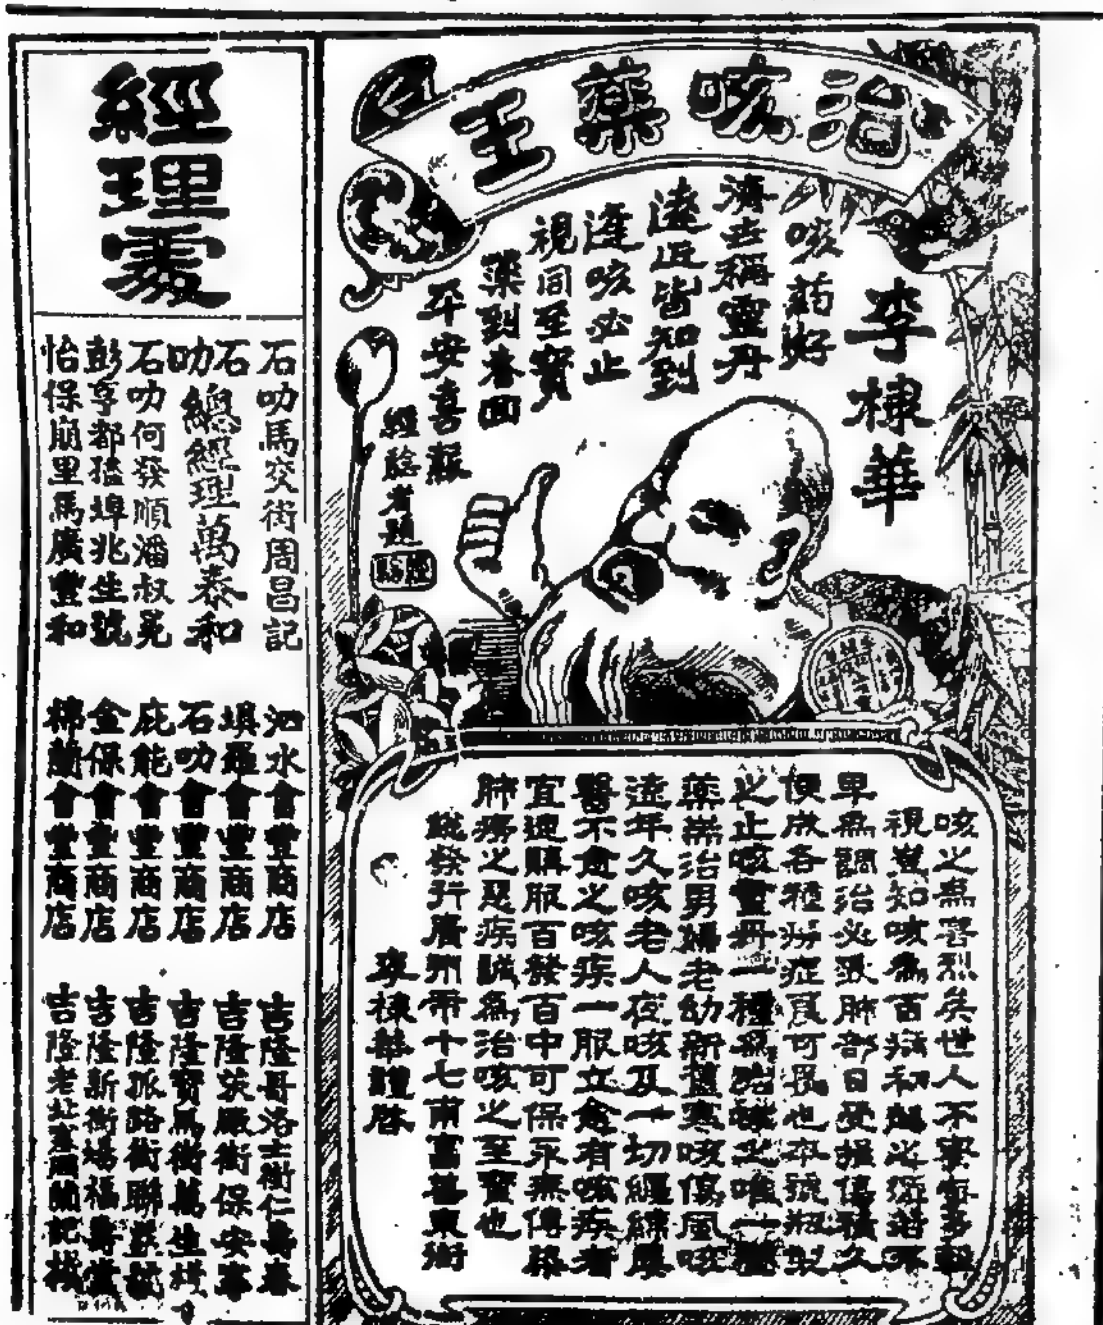 治咳藥王
李楝華
咳葯好
濟世稱靈丹
遠近皆知到
逢咳必止
視同至寶
藥到春回
平安喜報
咳之為害烈矣世人不察每多輕
視豈知咳為百病
早為調治必致肺部日受損傷積久
便成各種癆症良可畏也本號
之止咳靈丹一種
藥耑治男婦老幼新舊寒咳傷風咳
遠年久咳老人夜咳及一切纏綿屢
醫不愈之咳疾一服立愈有咳疾者
宜速購服百發百中可保永無傳
肺癆之惡疾誠為治咳之至寶也
總發行廣州市十七甫富善東街
李楝華謹啓
經理處
石叻馬交街周昌記
石叻總經理萬泰和
石叻何發順潘叔晃
彭亨都猛埠兆生號
怡保崩里馬廣豐和
泗水會豐商店
壩羅會豐商店
石叻會豐商店
庇能會豐商店
金保會豐商店
棉蘭會豐商店
吉隆哥洛士街仁壽春
吉隆茨廠街保安
吉隆寶馬街萬生
吉隆孤路街聯益號
吉隆新街場福壽堂
吉隆老